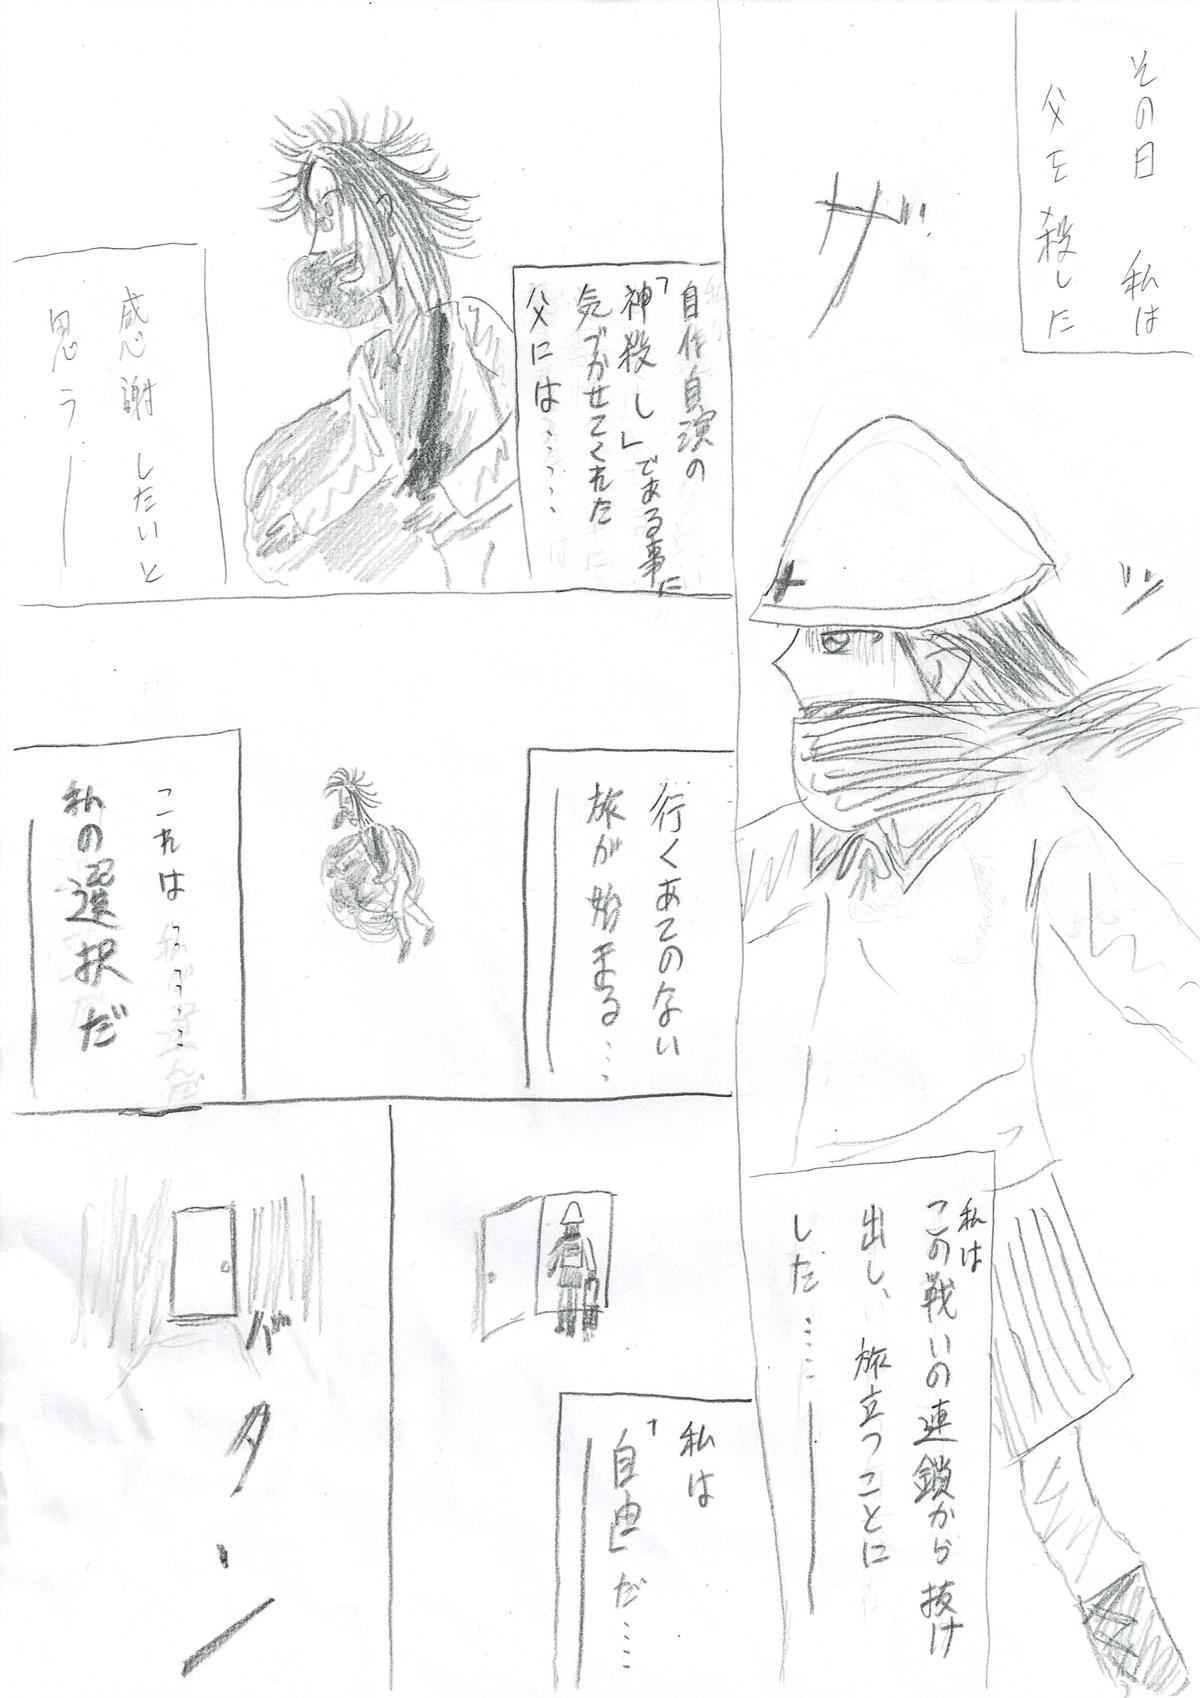 その日 私は
父を殺した
ザ
ッ
私は
この戦いの連鎖から抜け
出し、旅立つことに
した……―
自作自演の
「神殺し」である事に
気づかせてくれた
父には……
感謝したいと
思う―
行くあてのない
旅が始まる…
これは……
私の選択だ
私は
「自由」だ……
バターン